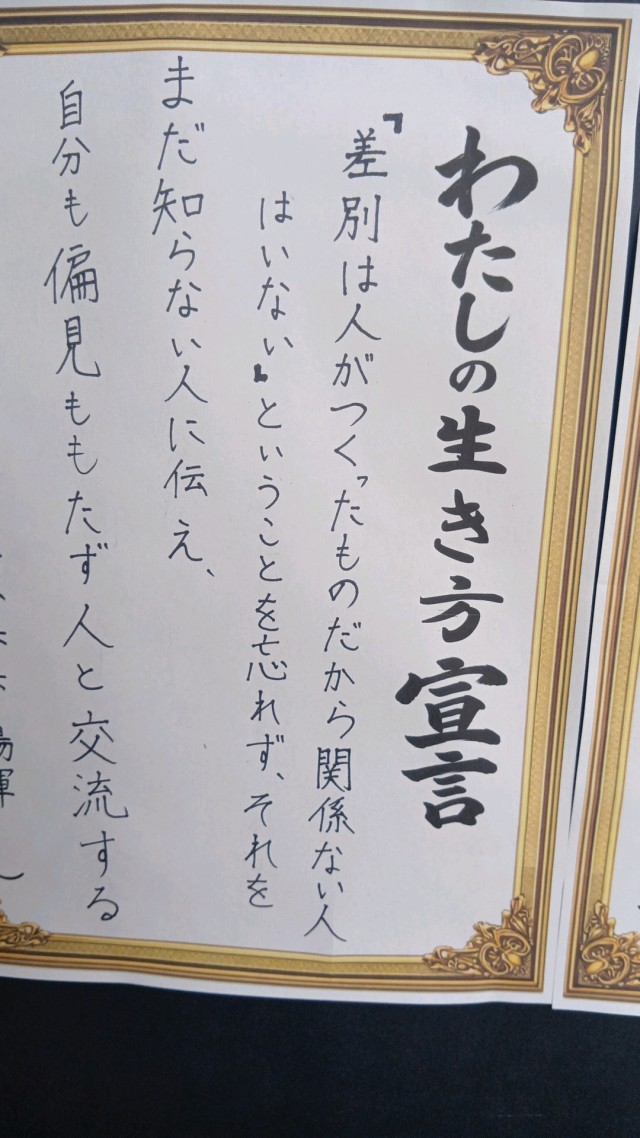 わたしの生き方宣言
「差別は人がつくったものだから関係ない人
はいない」ということを忘れず、それを
まだ知らない人に伝え、
自分も偏見ももたず人と交流する